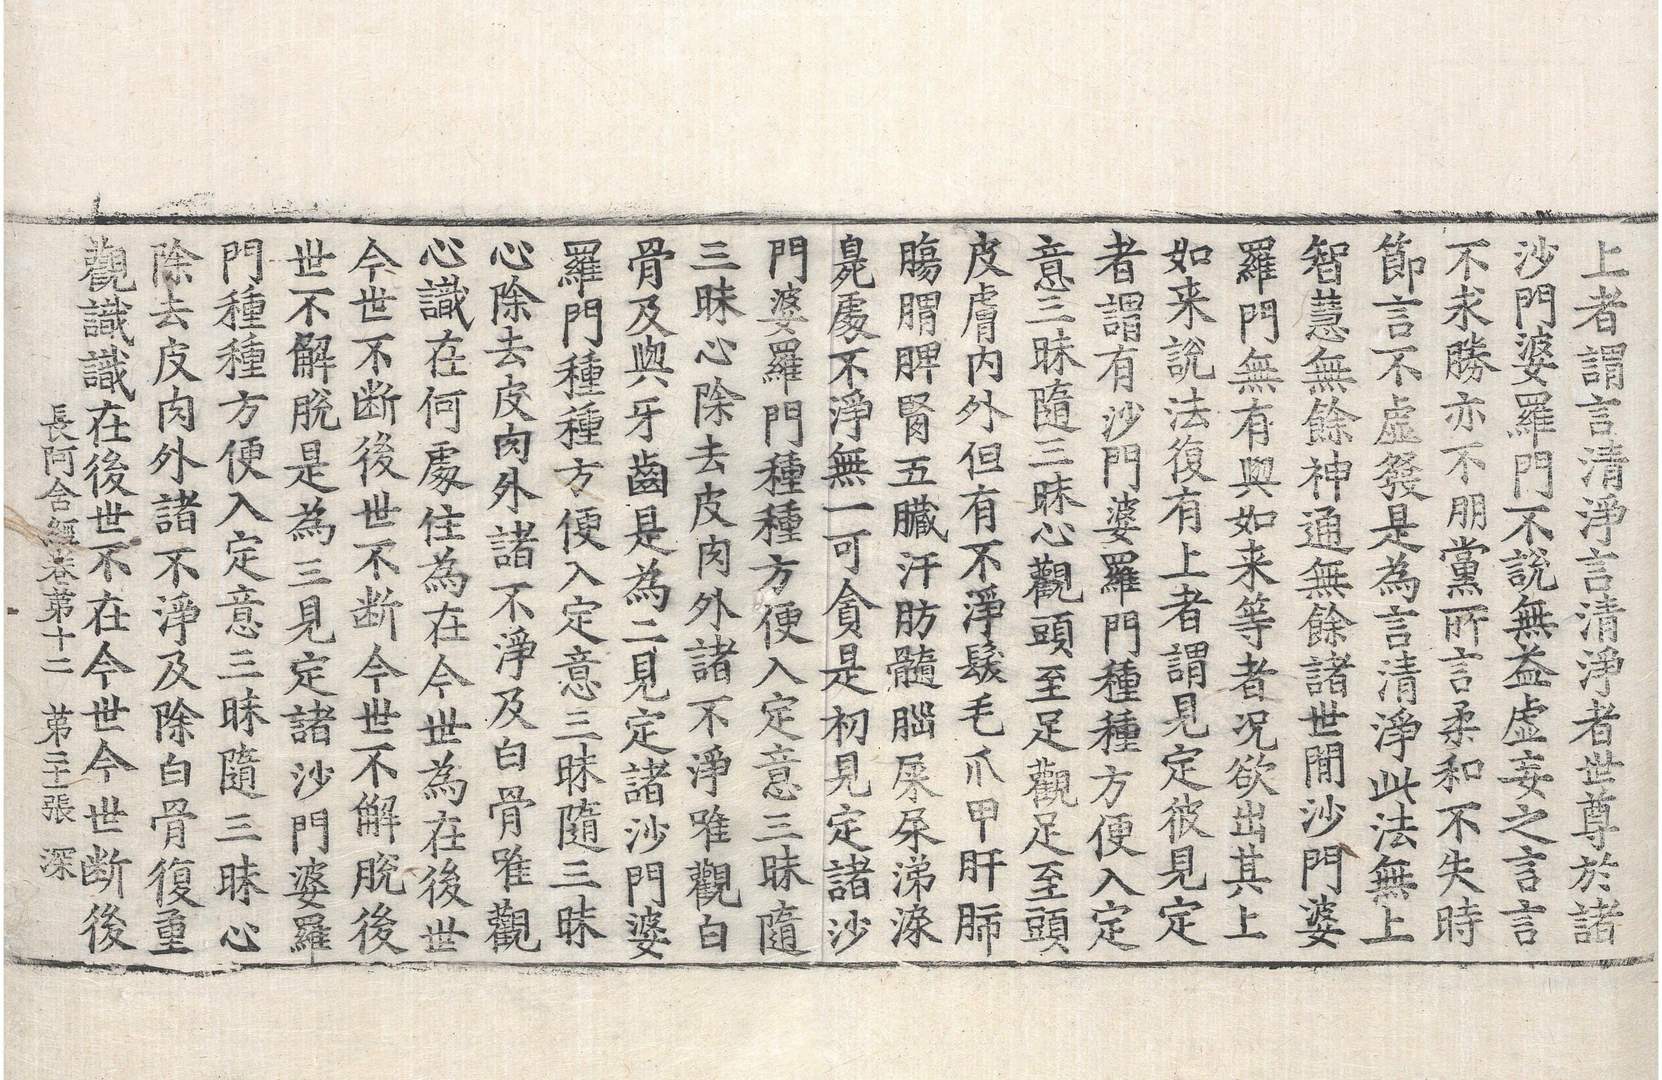 上者謂言清淨言清淨者世尊於諸
沙門婆羅門不說無益虛妄之言言
不求勝亦不朋黨所言柔和不失時
節言不虛發是為言清淨此法無上
智慧無餘神通無餘諸世閒沙門婆
羅門無有與如来等者况欲出其上
如来說法復有上者謂見定彼見定
者謂有沙門婆羅門種種方便入定
意三昧隨三昧心觀頭至足觀足至頭
皮膚內外但有不淨髮毛爪甲肝肺
腸胃脾腎五臟汗肪髓腦屎尿涕淚
臭處不淨無一可貪是初見定諸沙
門婆羅門種種方便入定意三昧隨
三昧心除去皮肉外諸不淨唯觀白
骨及與牙齒是為二見定諸沙門婆
羅門種種方便入定意三昧隨三昧
心除去皮肉外諸不淨及白骨唯觀
心識在何處住為在今世為在後世
今世不断後世不断今世不解脫後
世不解脫是為三見定諸沙門婆羅
門種種方便入定意三昧隨三昧心
除去皮肉外諸不淨及除白骨復重
觀識識在後世不在今世今世断後
長阿含經卷第十二 第二十一張 深